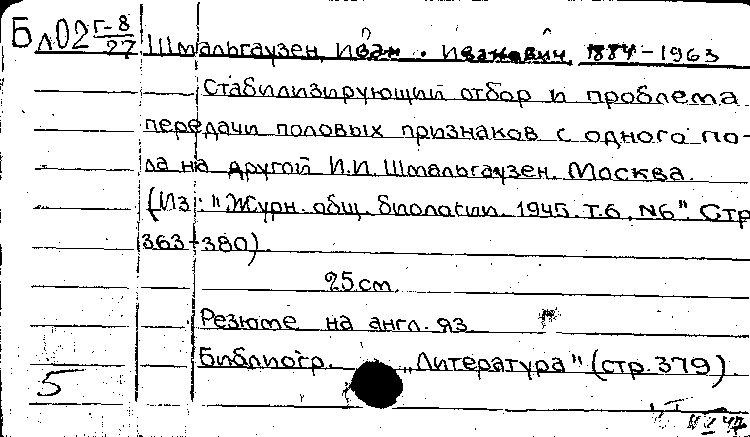 Бл02 Г-8/27 Шмальгаузен, Иван Иванович, 1884-1963
Стабилизирующий отбор и проблема
передачи половых признаков с одного по-
ла на другой И.И. Шмальгаузен. Москва.
(Из: "Журн. общ. биологии. 1945. Т.6, N6" Стр
363-380).
25 cm.
Резюме на англ. яз.
Библиогр. „Литература" (стр. 379).
5